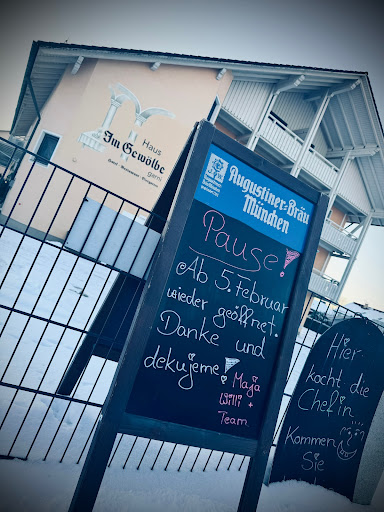 Haus
Im Gewölbe
garni
Augustiner-Bräu
München
Pause!
Ab 5. Februar
wieder geöffnet.
Danke und
dekujeme!
Maja
Willi +
Team
Hier
kocht die
Chefin
Kommen
Sie